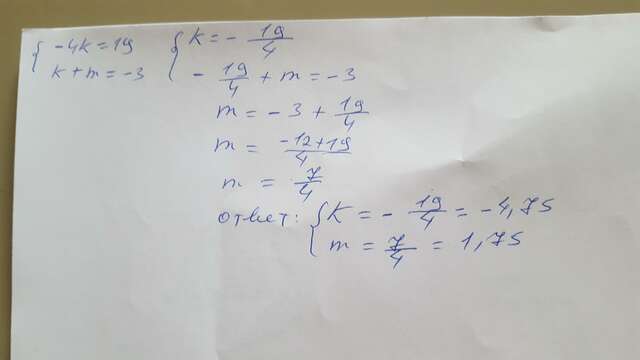 { -4k = 19
k + m = -3
{ k = - 19/4
- 19/4 + m = -3
m = -3 + 19/4
m = -12+19/4
m = 7/4
ответ: { k = - 19/4 = -4,75
m = 7/4 = 1,75